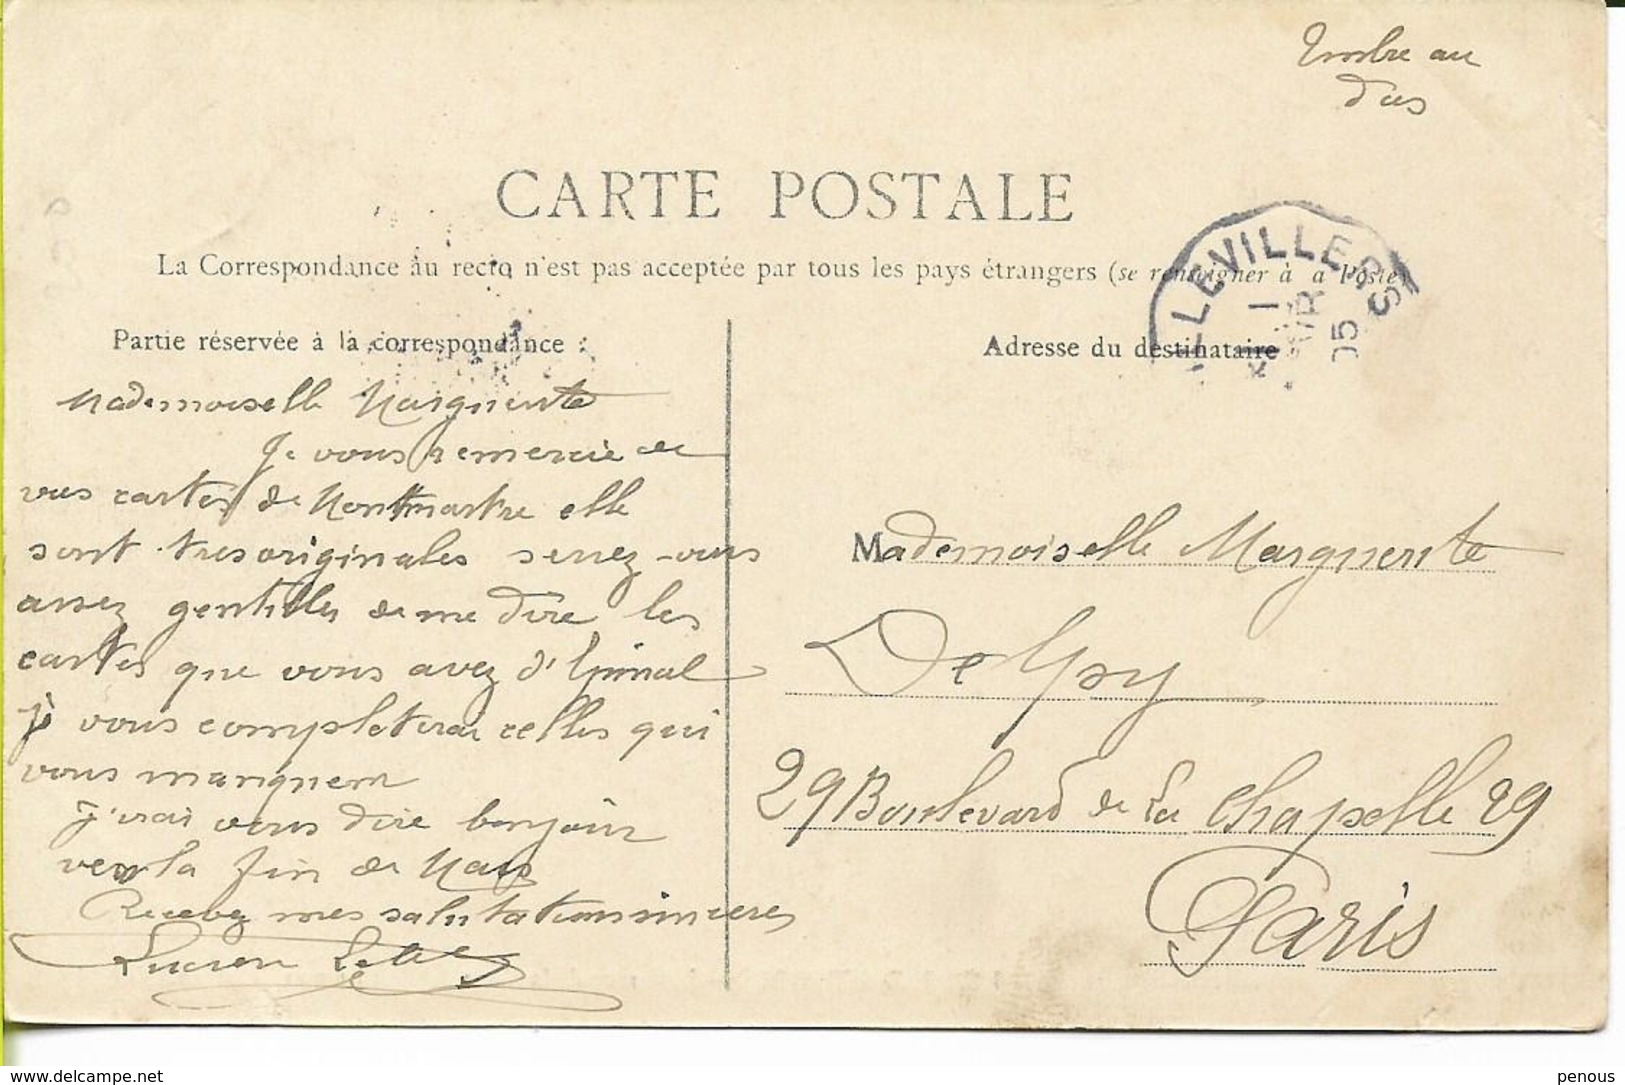 Timbre au
dos
CARTE POSTALE
La Correspondance au recto n'est pas acceptée par tous les pays étrangers (se renseigner à a Poste)
LLEVILLERS
1
05
Partie réservée à la correspondance :
Mademoiselle Marguerite
Je vous remercie de
vos cartes de Montmartre elle
sont tres originales serrez-vous
assez gentilles de me dire les
cartes que vous avez d'Epinal
je vous completerai celles qui
vous manquent
j'irai vous dire bonjour
vers la fin de Mars
Recevez mes salutations sinceres
Lucien
Adresse du destinataire
Mademoiselle Marguerite
Delpy
29 Boulevard de La Chapelle 29
Paris
www.delcampe.net
penous